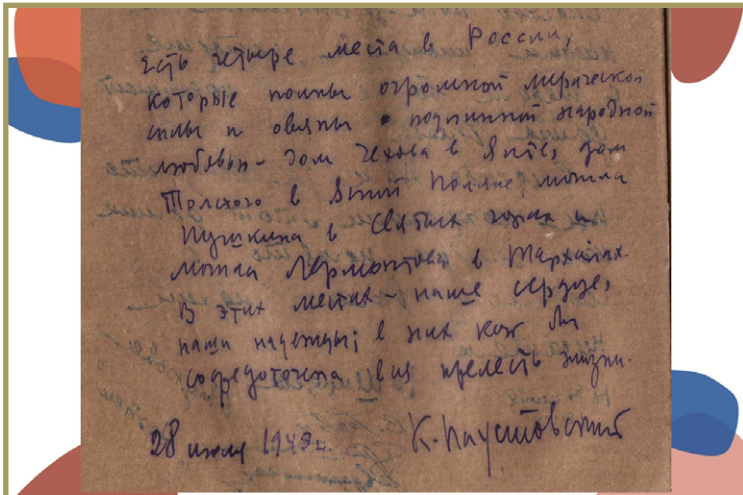 Есть четыре места в России,
которые полны огромной лирической
силы и овеяны подлинной народной
любовью - дом Чехова в Ялте, дом
Толстого в Ясной Поляне, могила
Пушкина в Святых горах и
могила Лермонтова в Тарханах.
В этих местах - наше сердце,
наши надежды; в них как бы
сосредоточена вся прелесть жизни.
28 1949г. К. Паустовский